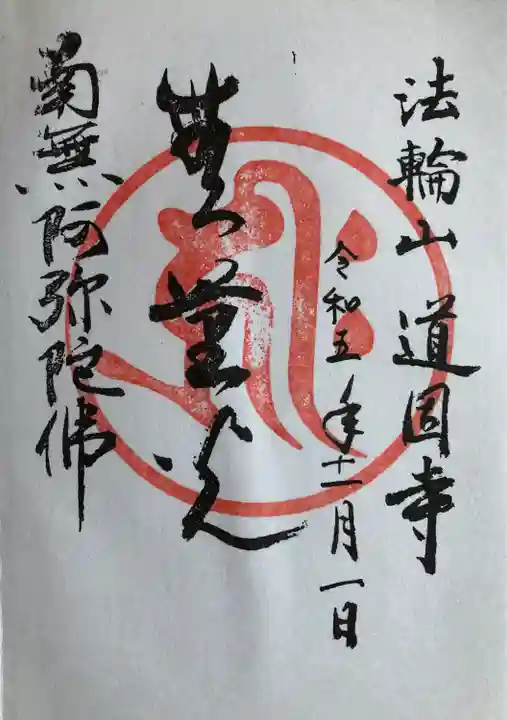 法輪山 道因寺
令和五年十一月一日
無量光
南無阿弥陀佛